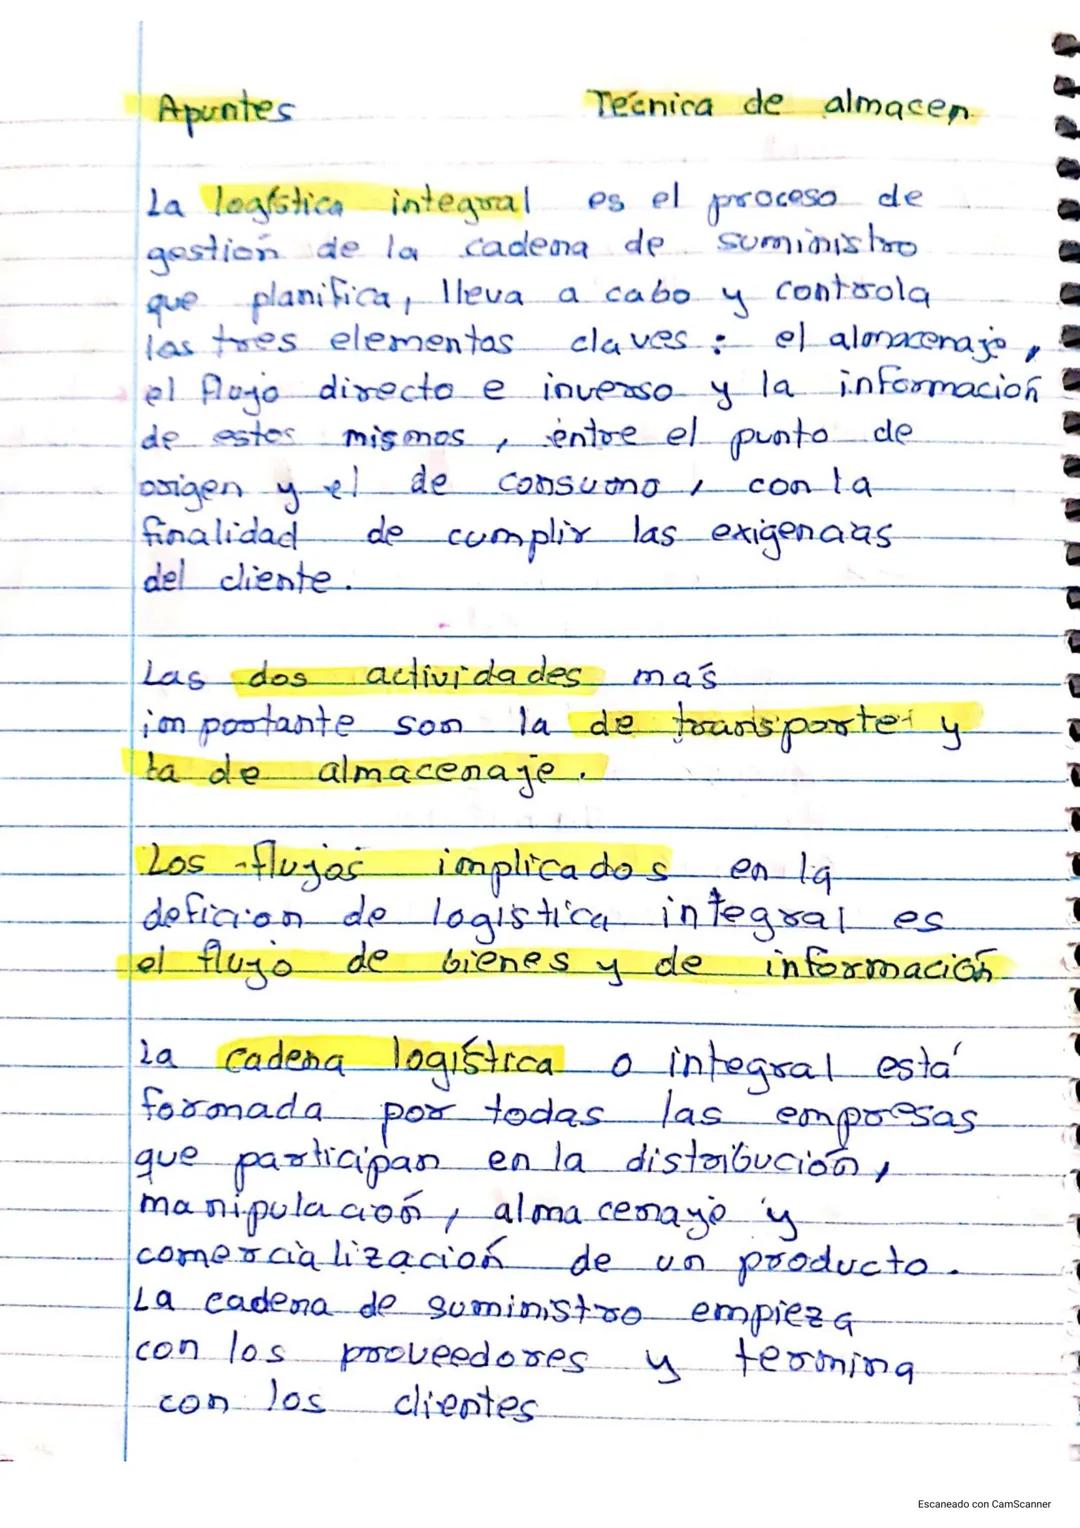 Apuntes Técnica de almacen
La logística integral es el proceso de
gestión de la cadena de suministro
que planifica, lleva a cabo y controla
las tres elementos claves : el almacenaje,
el flujo directo e inverso y la información
de estos mismos, entre el punto de
origen y el de consumo, con la
finalidad de cumplir las exigencias
del cliente.
Las dos actividades más
importante son la de transporte y
la de almacenaje.
Los flujos implicados en la
deficion de logistica integral es
el flujo de bienes y de información
La cadena logística o integral está
formada por todas las empresas
que participan en la distribución,
manipulación, almacenaje y
comercialización de un producto.
La cadena de suministro empieza
con los proveedores y termina
con los clientes
Escaneado con CamScanner